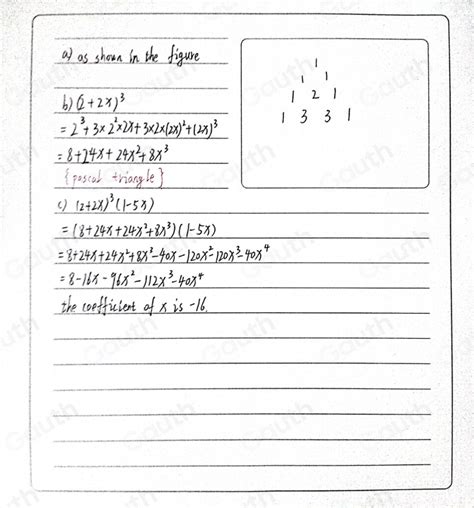 a) as shown in the figure
1
1 1
1 2 1
1 3 3 1
b) (2+2x)³
= 2³+3×2²×2x+3×2×(2x)²+(2x)³
= 8+24x+24x²+8x³
{pascal triangle}
c) (2+2x)³(1-5x)
= (8+24x+24x²+8x³)(1-5x)
= 8+24x+24x²+8x³-40x-120x²-120x³-40x⁴
= 8-16x-96x²-112x³-40x⁴
the coefficient of x is -16.